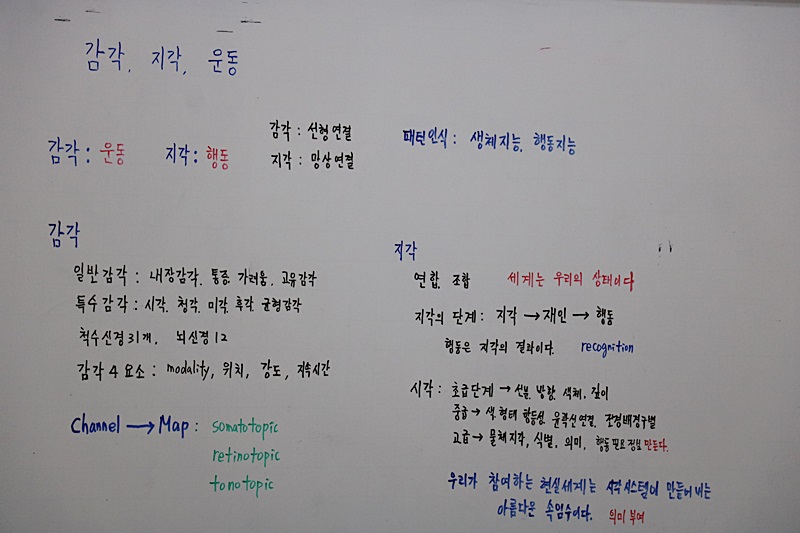 감각, 지각, 운동
감각 : 운동 지각 : 행동
감각 : 선형연결
지각 : 망상연결
패턴인식 : 생체지능, 행동지능
감각
일반감각 : 내장감각, 통증, 가려움, 고유감각
특수감각 : 시각, 청각, 미각, 후각, 균형감각
척수신경 31개, 뇌신경 12
감각 4 요소 : modality, 위치, 강도, 지속시간
Channel → Map : somatotopic
retinotopic
tonotopic
지각
연합, 조합 세계는 우리의 상태이다
지각의 단계 : 지각 → 재인 → 행동
행동은 지각의 결과이다. recognition
시각 : 초급단계 → 선분, 방향, 색체, 깊이
중급 → 색, 형태 항등성, 윤곽선연결, 전경배경구별
고급 → 물체지각, 식별, 의미, 행동필요정보 만든다.
우리가 참여하는 현실세계는 시각시스템이 만들어내는
아름다운 속임수이다. 의미 부여